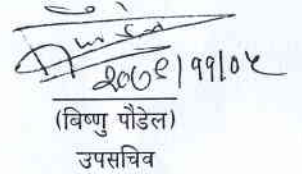 २०७९/११/०५
(बिष्णु पौडेल)
उपसचिव